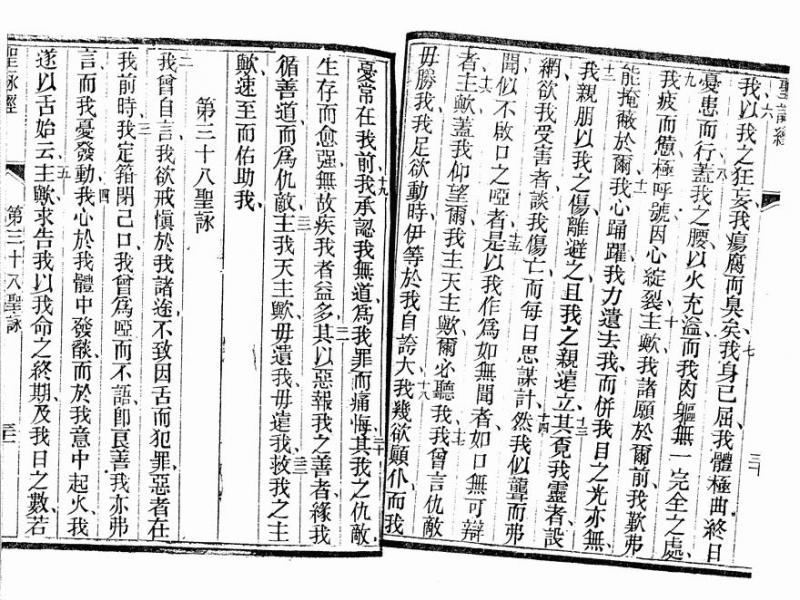 聖詠經
三十
六
我以我之狂妄我瘍腐而臭矣七我身已屈我體極曲終日
憂患而行八蓋我之腰以火充溢而我肉軀無一完全之處
九我疲而憊極呼號因心綻裂十主歟我諸願於爾前我歎弗
能掩蔽於爾十一我心踊躍我力遺去我而併我目之光亦無
十二我親朋以我之傷離避之且我之親遠立十三其覓我靈者設
網欲我受害者談我傷亡而每日思謀計十四然我似聾而弗
聞似不啟口之啞者十五是以我作為如無聞者如口無可辯
者十六主歟蓋我仰望爾我主天主歟爾必聽我十七我曾言仇敵
毋勝我我足欲動時伊等於我自誇大十八我幾欲顚仆而我
憂常在我前十九我承認我無道為我罪而痛悔二十其我之仇敵
生存而愈强無故疾我者益多二一其以惡報我之善者緣我
循善道而為仇敵二二主我天主歟毋遺我毋遠我二三救我之主
歟速至而佑助我
第三十八聖詠
二我曾自言我欲戒愼於我諸途不致因舌而犯罪惡者在
我前時我定箝閉己口三我曾為啞而不語卽艮善我亦弗
言而我憂發動四我心於我體中發燄而於我意中起火我
遂以舌始云五主歟求告我以我命之終期及我日之數若
聖詠經
第三十八聖詠
三一